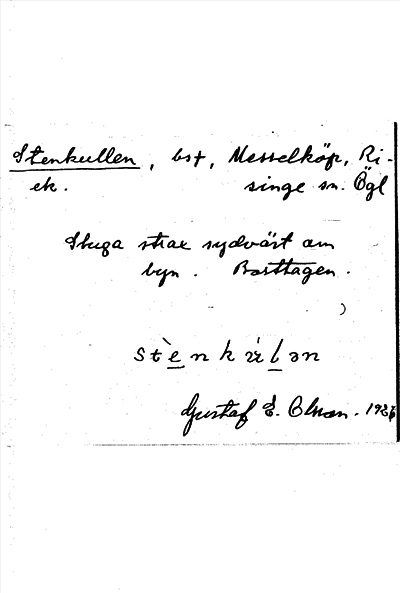 Stenkullen, bst, Messelköp, Ri-
ek. singe sn. Ögl
Stuga strax sydväst om
byn. Borttagen.
stènkúlən
Gustaf E. Olsson. 1926